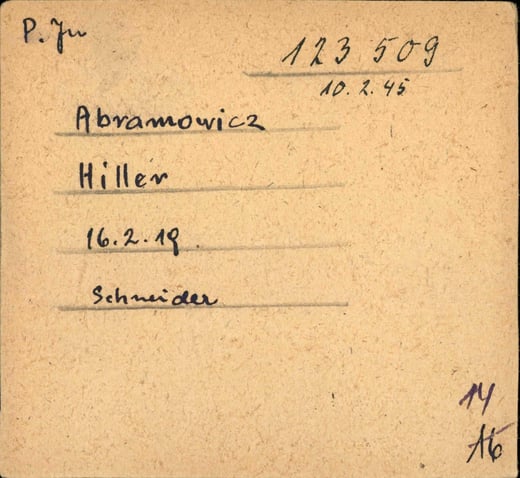 P. Ju
123 509
10. 2. 45
Abramowicz
Hiller
16. 2. 19.
Schneider
14
16